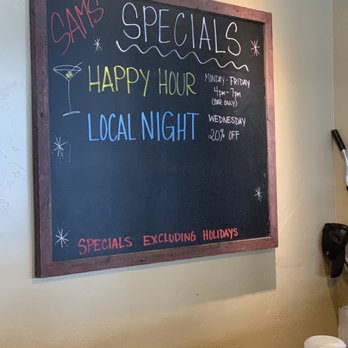 SAMS SPECIALS
HAPPY HOUR MONDAY - FRIDAY
4pm - 7pm
(BAR ONLY)
LOCAL NIGHT WEDNESDAY
20% OFF
SPECIALS EXCLUDING HOLIDAYS